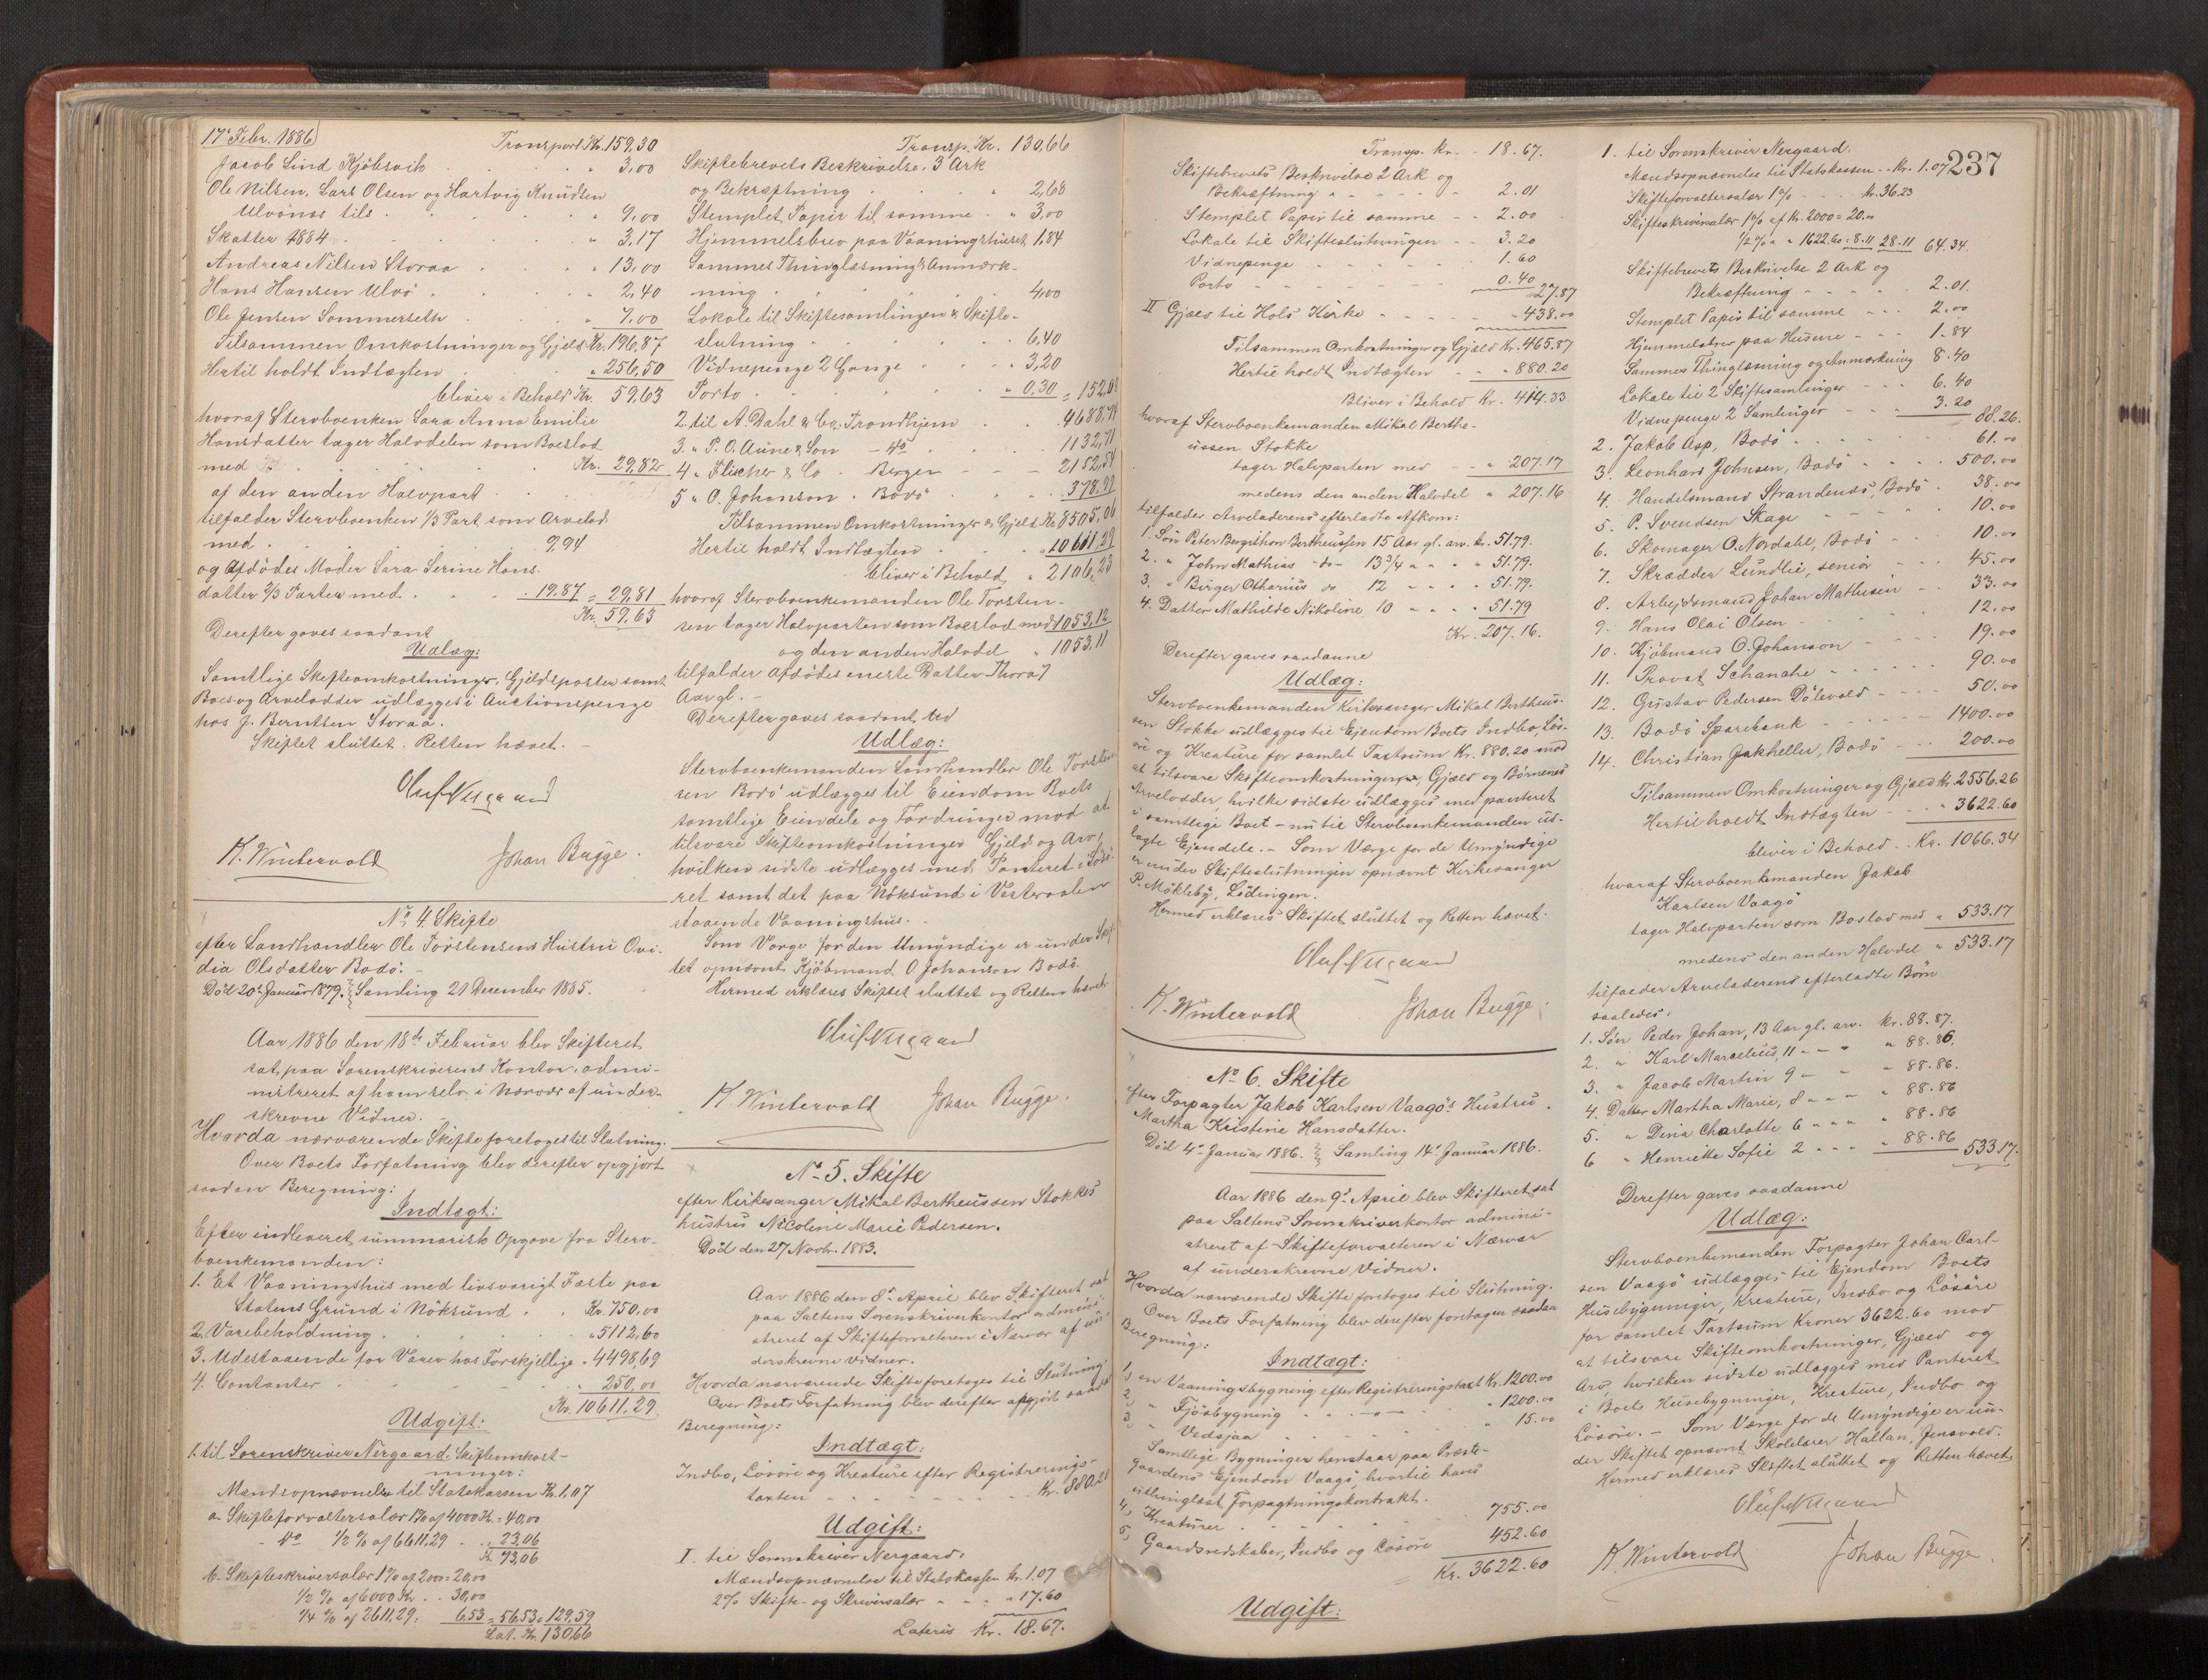 17' Febr. 1886
Transport Kr. 159,30
Jacob Lind Kjöbsvik . . " 3,00
Ole Nilsen, Lars Olsen og Hartvig Knudsen
Ulvönæs tils. . . . " 9,00
Skatter 1884 . . . " 3,17
Andreas Nilsen Storaa . . . " 13,00
Hans Hansen Ulvö . . . " 2,40
Ole Jensen Sommerseth . . " 7,00
Tilsammen Omkostninger og Gjeld Kr. 196,87
Hertil holdt Indtægten . . " 256,50
bliver i Behold Kr. 59,63
hvoraf Stervboenken Sara Anna Emilie
Hansdatter tager Halvdelen som Boeslod
med . . . Kr. 29,82
af den anden Halvpart
tilfalder Stervboenken 1/3 Part som Arvelod
med . . . 9,94
og Afdödes Moder Sara Serine Hans
datter 2/3 Parter med . . . 19.87 = 29,81
Kr. 59,63
Derefter gaves saadant
Udlæg:
Samtlige Skifteomkostninger, Gjeldsposter samt
Boes og Arvelodder udlægges i Auctionspenge
hos J. Berntsen Storaa.
Skiftet sluttet. Retten hævet. –
Oluf Nergaard
K. Wintervold Johan Bugge.
No 4. Skifte
efter Landhandler Ole Torstensens Hustru Ovi-
dia Olsdatter Bodö. –
Död 20de Januar 1879. Samling 21 December 1885.
Aar 1886 den 18de Februar blev Skifteret
sat paa Sorenskriverens Kontor, admi-
nistreret af ham selv i Nærvær af under-
skrevne Vidner. –
Hvorda nærværende Skifte foretoges til Slutning.
Over Boets Forfatning blev derefter opgjort
saadan Beregning:
Indtægt:
Efter indleveret summarisk Opgave fra Sterv-
boenkemanden:
1. Et Vaaningshus med livsvarigt Fæste paa
Statens Grund i Nöksund . . Kr. 750,00
2. Varebeholdning . . . " 5112,60
3. Udestaaende for Varer hos Forskjellige " 4498,69
4. Contanter . . . " 250,00
Kr. 10611,29
Udgift:
1. til Sorenskriver Nergaard. Skifteomkost-
ninger:
Mandsopnævnelse til Statskassen Kr. 1,07
a. Skifteforvaltersalær 1% af 4000 Kr. = 40,00
do 1/2 % af 6611,29 . . 33,06
Kr. 73,06
b. Skifteskriversalær 1% af 2000 = 20,00
1/2 % af 6000 Kr. . . 30,00
1/4 % af 2611,29. 6,53 = 56,53 = 129,59
Lat. Kr. 130,66
Transp. Kr. 130,66
Skiftebrevets Beskrivelse. 3 Ark
og Bekræftning . . . " 2,68
Stemplet Papir til samme . " 3,00
Hjemmelsbrev paa Vaaningshuset 1,84
Sammes Thinglæsning & Anmærk-
ning . . . 4,00
Lokale til Skiftesamlingen & Skifte-
slutning . . . 6,40
Vidnepenge 2 Gange . . . 3,20
Porto . . . " 0,30 = 152,08
2. til A. Dahl & Co. Trondhjem . . 4688,74
3. " P. O. Aune & Søn – do . . 1132,71
4 " Flucher & Co . Bergen – – 2152,54
5 " O. Johanson . Bodö . . . 378.99
Tilsammen Omkostninger & Gjeld Kr. 8505,06
Hertil holdt Indtægten . . " 10611,29
bliver i Behold " 2106,23
hvoraf Stervboenkemanden Ole Torsten-
sen tager Halvparten som Boeslod med 1053,12
og den anden Halvdel " 1053,11
tilfalder Afdödes eneste Datter Thora 7
Aar gl. –
Derefter gaves saadant ted
Udlæg:
Stervboenkemanden Landhandler Ole Torsten
sen Bodö udlægges til Eiendom Boets
samtlige Eiendele og Fordringer mod at
tilsvare Skifteomkostninger Gjeld og Arv,
hvilken sidste udlægges med Panteret i Løsö-
ret samt det paa Nöksund i Vesteraalen
staaende Vaaningshus. –
Som Værge for den Umyndige er under Skif
tet opnævnt Kjöbmand O Johanson Bodö.
Hermed erklæres Skiftet sluttet og Retten hævet
Oluf Nergaard
K Wintervold Johan Bugge.
No 5. Skifte
efter Kirkesanger Mikal Bertheussen Stokkes
hustru Nicoline Marie Pedersen.
Död den 27 Novbr. 1883.
Aar 1886 den 8de April blev Skifteret sat
paa Saltens Sorenskriverkontor admini-
streret af Skifteforvalteren i Nærvær af un-
derskrevne vidner.
Hvorda nærværende Skifte foretoges til Slutning.
Over Boets Forfatning blev derefter opgjort saadan
Beregning:
Indtægt:
Indbo, Lösöre og Kreature efter Registrerings-
taxten . . . Kr. 880.20
Udgift:
I. til Sorenskriver Nergaard:
Mandsopnævnelse til Statskassen Kr. 1.07
2% Skifte- og Skriversalær - - - " 17.60
Lateris Kr. 18.67.
Transp. Kr. - 18.67.
Skiftebrevets Beskrivelse 2 Ark og
Bekræftning - - - - 2.01
Stemplet Papir til samme - - 2.00
Lokale til Skifteslutningen - - 3.20
Vidnepenge - - - - 1.60
Porto - - - - 0.40
27.87
II Gjæld til Hols Kirke - - - - 438.00
Tilsammen Omkostninger og Gjæld Kr. 465.87
Hertil holdt Indtægten - - " 880.20
Bliver i Behold Kr. 414.33
hvoraf Stervboenkemanden Mikal Berthe-
ussen Stokke
tager Halvparten med - - " 207.17
medens den anden Halvdel " 207.16
tilfalder Arveladerens efterladte Afkom:
1. Søn Peter Bergithon Bertheussen 15 Aar gl. arv. kr. 51.79.
2. " John Mathias -do- 13 3/4 " " " 51.79.
3. " Birger Otharius do 12 " " " 51.79.
4. Datter Mathilde Nikoline 10 " " " 51.79
Kr. 207.16.
Derefter gaves saadanne
Udlæg:
Stervboenkemanden Kirkesanger Mikal Bertheus-
sen Stokke udlægges til Ejendom Boets Indbo, Lös-
öre og Kreature for samlet Taxtsum Kr. 880.20 mod
at tilsvare Skifteomkostninger, Gjæld og Børnenes
Arvelodder, hvilke sidste udlægges med panteret
i samtlige Boet – nu til Stervboenkemanden ud-
lagte Ejendele. – Som Værge for de Umyndige
er under Skifteslutningen opnævnt Kirkesanger
P. Mökleby, Lödingen.
Hermed erklæres Skiftet sluttet og Retten hævet.
Oluf Nergaard
K. Wintervold Johan Bugge.
No 6. Skifte
efter Forpagter Jakob Karlsen Vaagös Hustru
Martha Kristine Hansdatter.
Död 4de Januar 1886. Samling 14de Januar 1886.
Aar 1886 den 9de April blev Skifteret sat
paa Saltens Sorenskriverkontor admini-
streret af Skifteforvalteren i Nærvær
af underskrevne Vidner.
Hvorda nærværende Skifte foretoges til Slutning.
Over Boets Forfatning blev derefter foretagen saadan
Beregning:
Indtægt:
1) en Vaaningsbygning efter Registreringstaxt Kr. 1200.00
2) " Fjösbygning . . -"- . . " 1200.00
3) " Vedsjaa . . . " 15.00
Samtlige Bygninger henstaar paa Præste-
gaardens Ejendom Vaagö, hvortil haves
uthinglæst Forpagtningskontrakt.
4) Kreaturer . . . 755.00
5) Gaardsredskaber, Indbo og Lösöre 452.60
Kr. 3622.60
Udgift:
237
1. til Sorenskriver Nergaard.
Mandsopnævnelse til Statskassen - - Kr. 1.07
Skifteforvaltersalær 1% - - Kr. 36.23
Skifteskriversalær 1% af Kr. 2000 = 20.00
1/2 % " " 1622.60 = 8.11 28.11 64.34.
Skiftebrevets Beskrivelse 2 Ark og
Bekræftning - - - - 2.01.
Stemplet Papir til samme - - - 2.00
Hjemmelsbrev paa Husene - - - 1.84
Sammes Thinglæsning og Anmærkning 8.40
Lokale til 2 Skiftesamlinger - - - 6.40
Vidnepenge 2 Samlinger - - - 3.20
88.26.
2. Jakob Asp, Bodö . . . . 61.00
3. Leonhard Johnsen, Bodö . . . 500.00
4. Handelsmand Strandenæs, Bodö . 38.00
5. P. Svendsen Skage - - - 10.00
6. Skomager O. Nordahl, Bodö - - 10.00
7. Skrædder Lundlie, senior - - - 45.00
8. Arbejdsmand Johan Mathisen - - 33.00
9. Hans Olai Olsen - - - 12.00
10. Kjöbmand O. Johanson - - - 19.00
11. Provst Schanche - - - - 90.00
12. Gustav Pedersen Dölevold - - - 50.00
13. Bodö Sparebank - - - - 1400.00
14. Christian Jakhelln, Bodö - - 200.00
Tilsammen Omkostninger og Gjæld Kr. 2556.26
Hertil holdt Indtægten - - " 3622.60
bliver i Behold . . Kr. 1066.34
hvoraf Stervboenkemanden Jakob
Karlsen Vaagö
tager Halvparten som Boslod med " 533.17
medens den anden Halvdel " 533.17
tilfalder Arveladerens efterladte Børn
saaledes:
1. Søn Peder Johan, 13 Aar gl. arv. Kr. 88.87.
2. " Karl Marcelius, 11 - - " " 88.86.
3. " Jacob Martin 9 - - " " 88.86.
4. Datter Martha Marie, 8 - - - " 88.86
5. " Dina Charlotte 6 " " " " 88.86
6 " Henriette Sofie 2 - - - " 88.86 533.17.
Derefter gaves saadanne
Udlæg:
Stervboenkemanden Forpagter Johan Carl-
sen Vaagö udlægges til Ejendom Boets
Husebygninger, Kreature, Indbo og Lösöre
for samlet Taxtsum Kroner 3622.60 mod
at tilsvare Skifteomkostninger, Gjæld og
Arv, hvilken sidste udlægges med Panteret
i Boets Husebygninger, Kreature, Indbo og
Lösöre. – Som Værge for de Umyndige er un-
der Skiftet opnævnt Skolelærer Hallan, Jensvold.
Hermed erklæres Skiftet sluttet og Retten hævet.
Oluf Nergaard
K. Wintervold Johan Bugge.